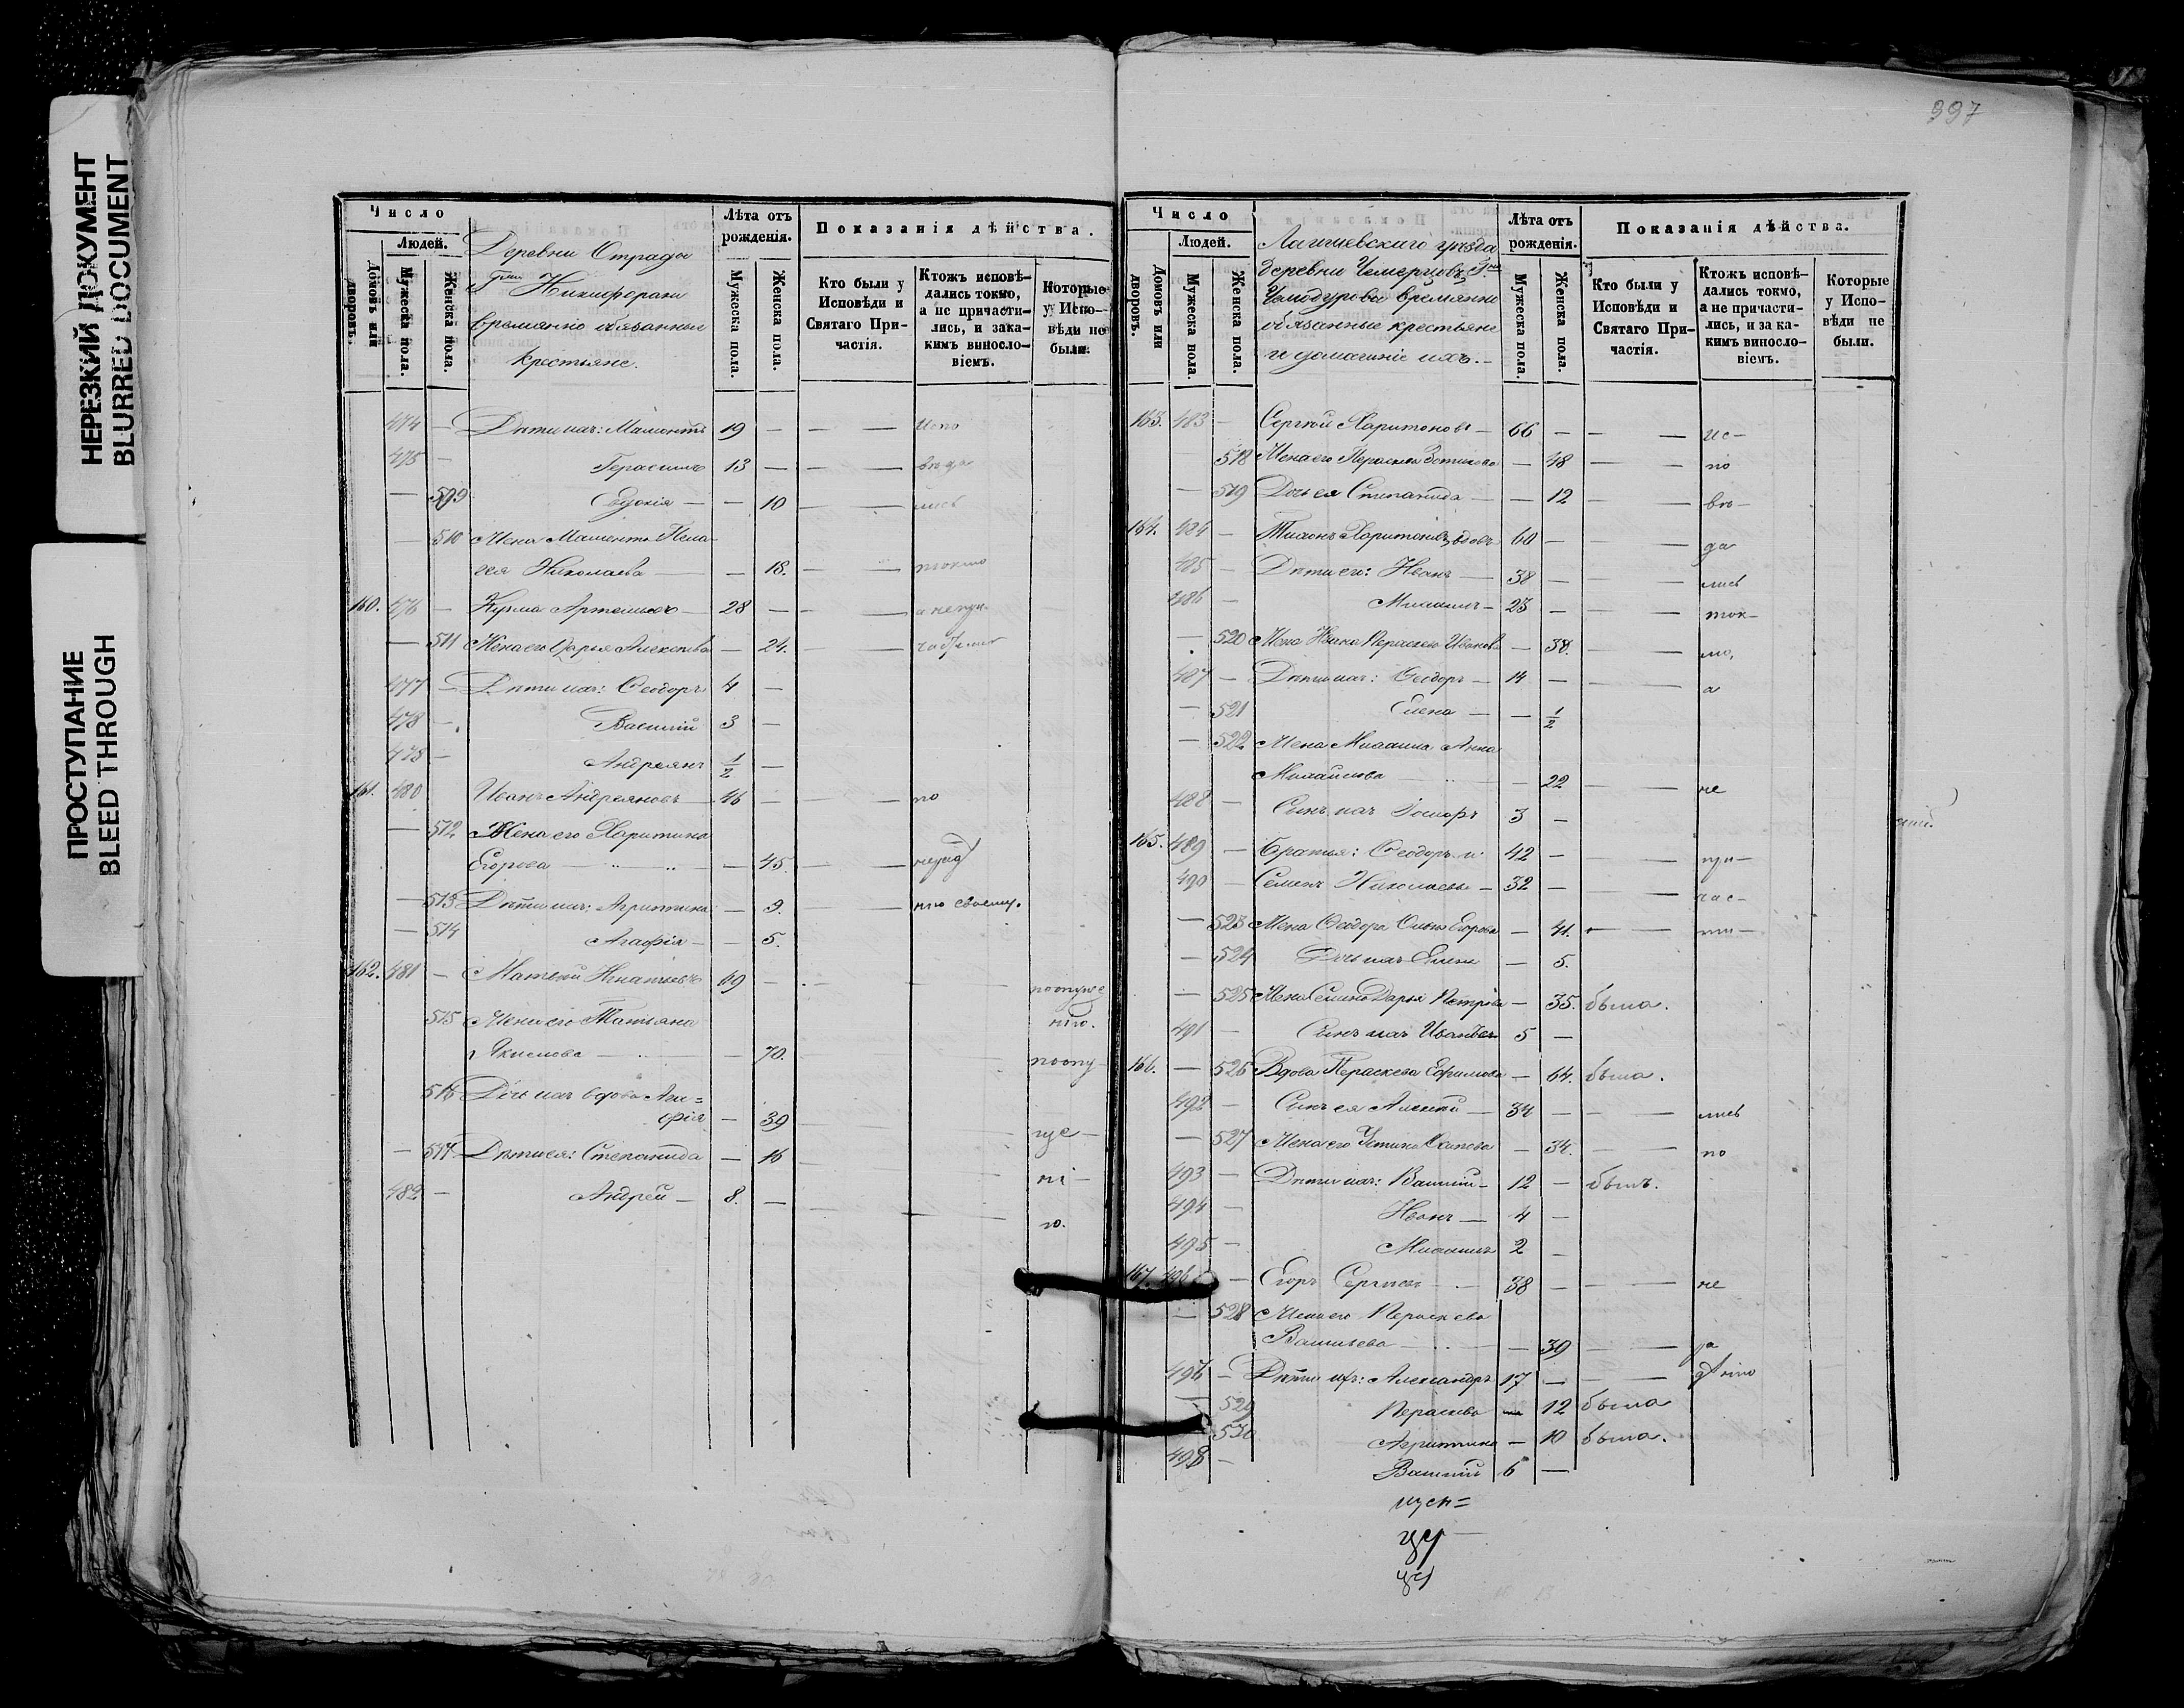 НЕРЕЗКИЙ ДОКУМЕНТ
BLURRED DOCUMENT
ПРОСТУПАНИЕ
BLEED THROUGH
Число
Людей.
Домовъ или дворовъ.
Мужеска пола.
Женска пола.
Деревни Отрады
Гжи Никифораки
временно обязанные
крестьяне.
Лѣта отъ рожденія.
Мужеска пола.
Женска пола.
Показанія дѣйства.
Кто были у Исповѣди и Святаго Причастія.
Ктожъ исповѣ-
дались токмо,
а не причасти-
лись, и зака-
кимъ винесло-
віемъ.
Которые
у Испо-
вѣди не
были.
474 — Дѣти ихъ: 19 — — — испо
475 — Герасимъ 13 — — — вѣда
— 509 Евдокія — — 10 — — лись
— 510 Жена Пела-
гея Николаева — — 18. — — токмо
160. 476 — Кузма 28 — — — а непри-
— 511 Жена его Дарья Алексѣева — 24. — —
477 — Дѣти ихъ: Ѳеодоръ 4 —
478 — Василій 3 —
479 — Андреянъ 1/2 —
161. 480 Иванъ Андреяновъ 46 — — — по
— 512 Жена его Харитина
Егорова — — 45. — —
— 513 Дѣти ихъ: Агрипина — 9. — — нію своему.
— 514 Агафія — — 5.
162. 481 — Матвѣй Игнатьевъ 69 — — —
515 Жена его Татьяна
нію.
— — 70. — поопу-
516 Дочь ихъ вдова Ага=
фія — 39 — ще—
— 517 Дѣти ея: Степанида — 16 — ні—
482 — Андрей — 8. — — ю.
397
Число
Людей.
Домовъ или дворовъ.
Мужеска пола.
Женска пола.
уѣзда
деревни Гна
временно
обязанные крестьяне
и домашніе ихъ.
Лѣта отъ рожденія.
Мужеска пола.
Женска пола.
Показанія дѣйства.
Кто были у Исповѣди и Святаго Причастія.
Ктожъ исповѣ-
дались токмо,
а не причасти-
лись, и за ка-
кимъ винесло-
віемъ.
Которые
у Испо-
вѣди не
были.
163. 483 — Сергѣй Харитоновъ — 66 — — — ис—
518 Жена его — 48 — — по
— 519 Дочь ея Степанида — — 12 — — вѣ—
164. 484 — Тихонъ Харитоновъ, вдовъ 60 — — — да
485 — Дѣти его: Иванъ — 38 — — — лись
486 — Михаилъ — 23 — — — ток—
— 520 Жена Ивана Параскева Иванова — 38. — — мо,
487 — Дѣти ихъ: Ѳеодоръ — 14 — — — а
— 521 Елена — — 1/2
— 522 Жена Михаила Анна
Михайлова — — 22 — — не
488 — Сынъ ихъ Іосифъ 3 —
165. 489 — Братья: Ѳеодоръ и 42 — — — при—
490 — Семенъ Николаевы — 32 — — — час—
— 523 Жена Ѳеодора Егорова — 41. — — ти—
— 524 Дочь ихъ Елена — 5.
— 525 Жена Семена Дарья Петрова — 35. была.
491 — Сынъ ихъ 5 —
166. — 526 Вдова Параскева Ефимова — 64. была.
492 — Сынъ ея Алексѣй — 34 — — — лись
— 527 Жена его Устинья — 34. — — по
493 — Дѣти ихъ: Василій — 12 — былъ.
494 — Иванъ — 4 —
495 — Михаилъ 2 —
167. 496 — Егоръ Сергѣевъ — 38 — — — не
— 528 Жена его Параскева
Васильева — — 39 — —
497 — Дѣти ихъ: Александръ 17 — — —
— 529 Параскева — 12 была
530 Агрипина — 10 была.
498 — Василій 6 —